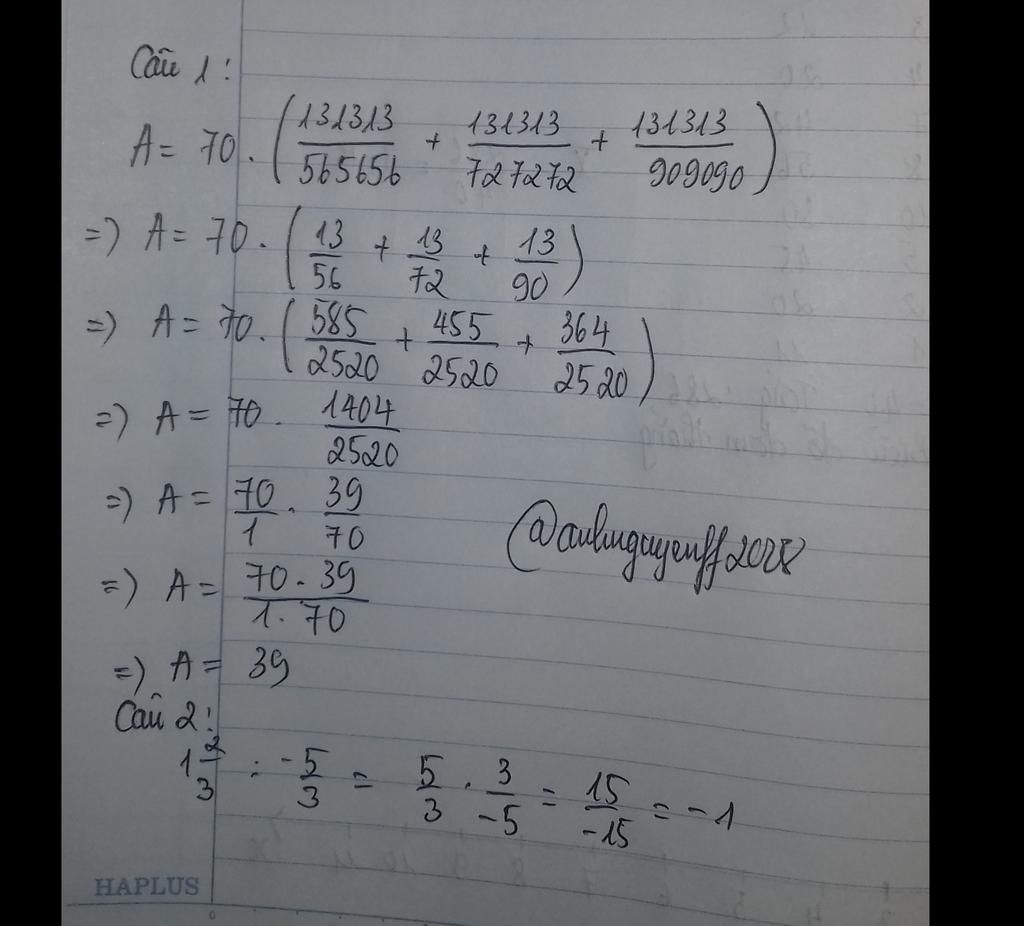 Câu 1:
A = 70 . (131313/565656 + 131313/727272 + 131313/909090)
=) A = 70 . (13/56 + 13/72 + 13/90)
=) A = 70 . (585/2520 + 455/2520 + 364/2520)
=) A = 70 . 1404/2520
=) A = 70/1 . 39/70
=) A = 70 . 39/1 . 70
=) A = 39
Câu 2:
1 2/3 : -5/3 = 5/3 . 3/-5 = 15/-15 = -1
HAPLUS